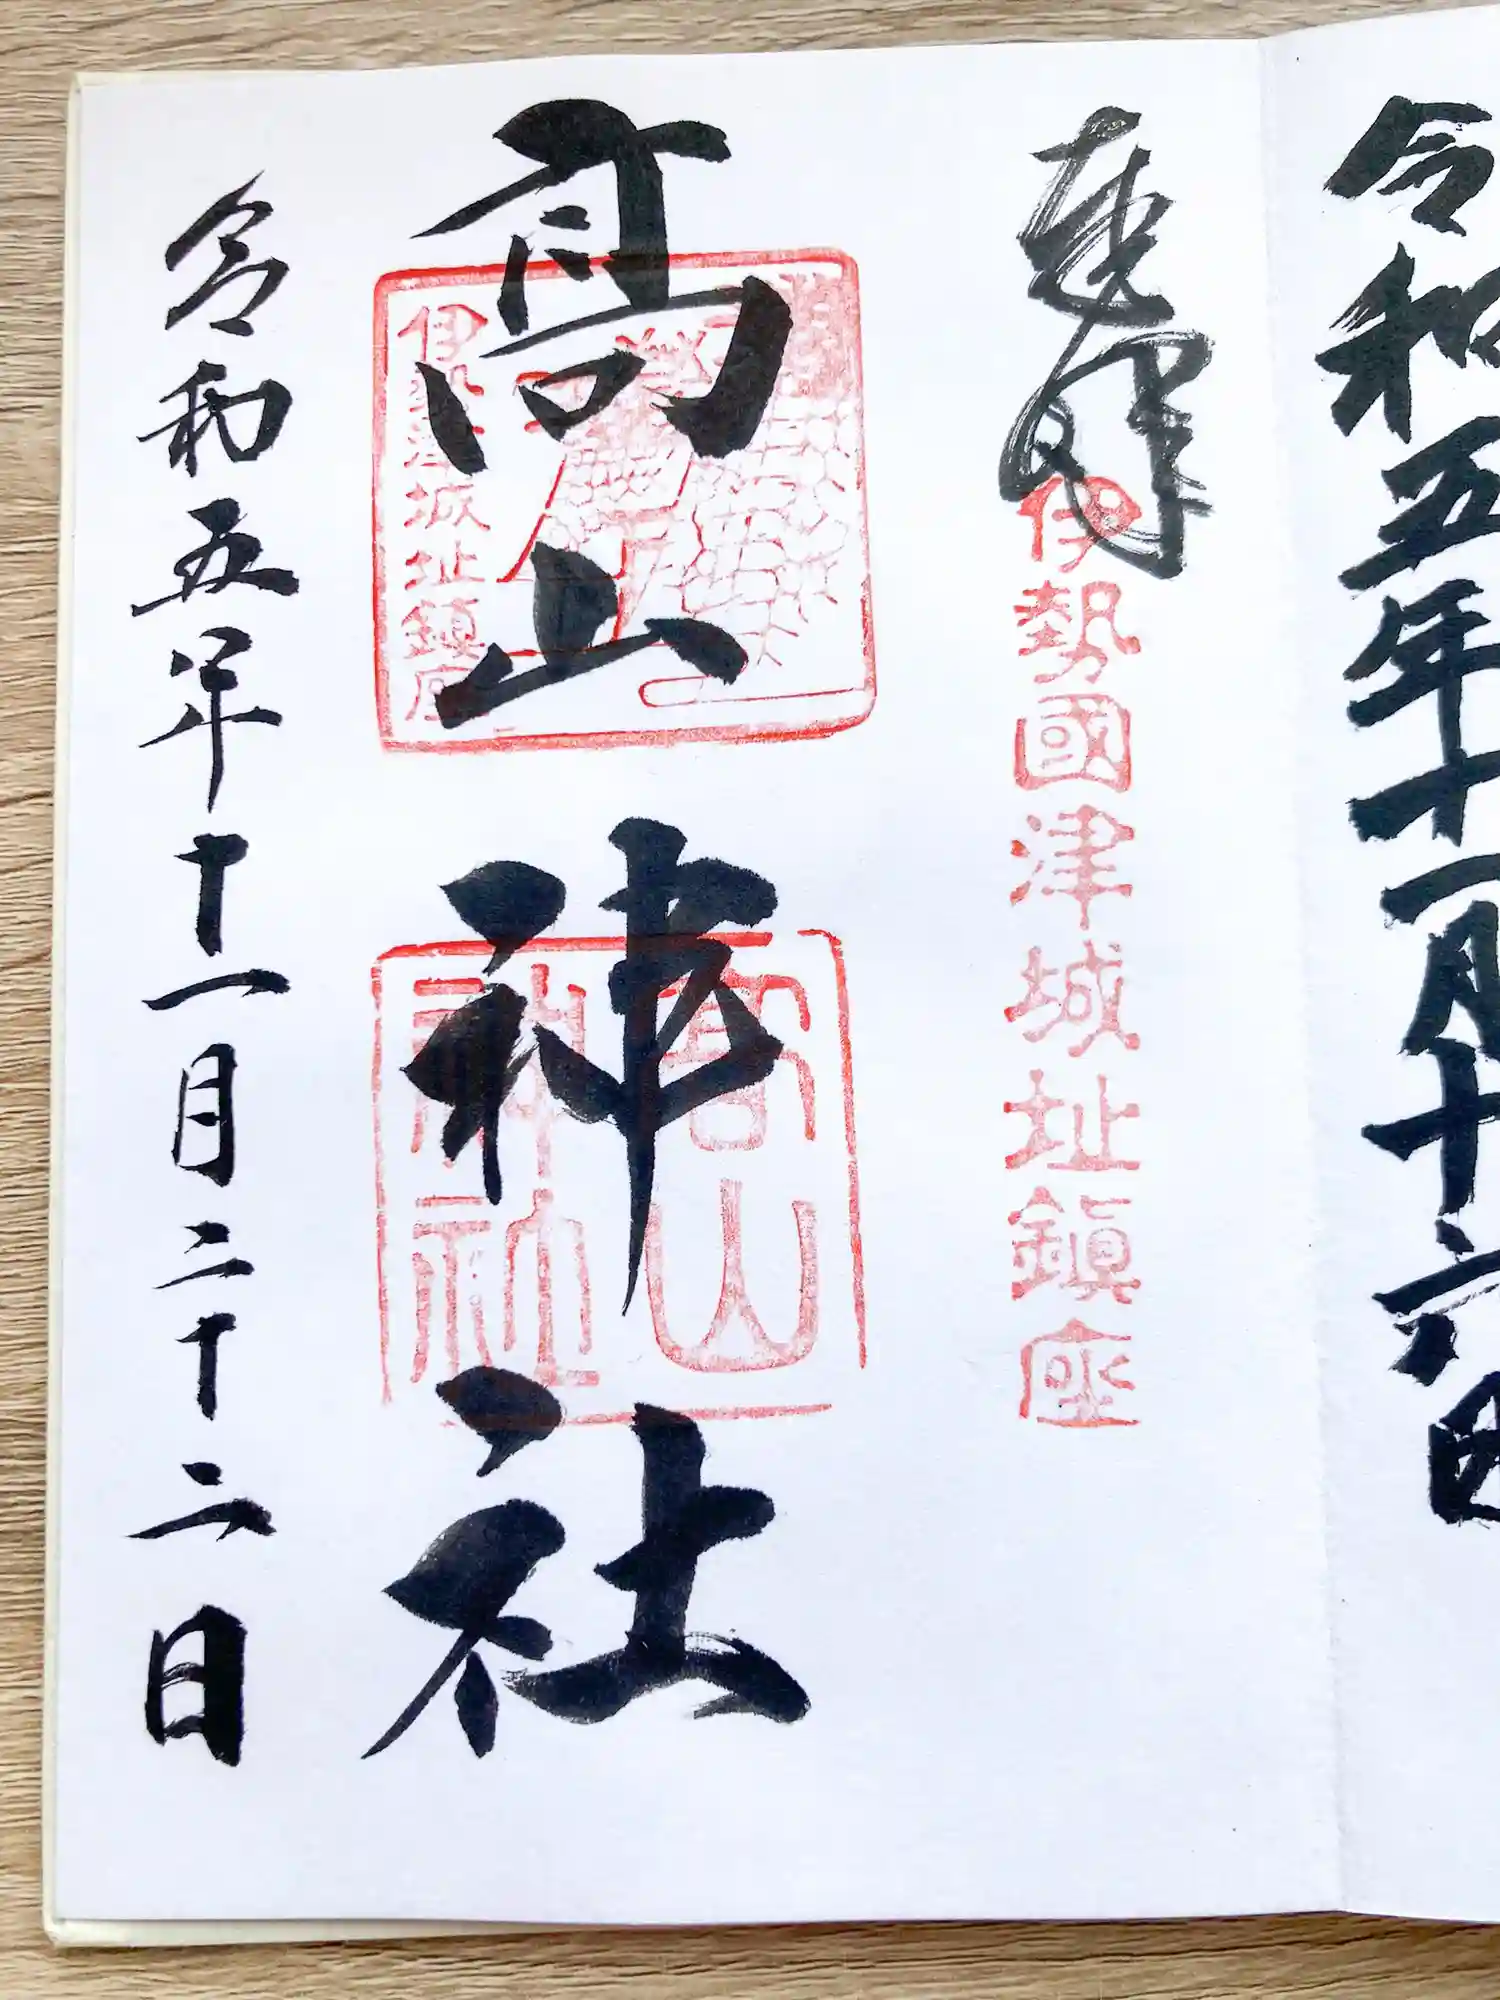 令和五年十一月十六日
奉拝
伊勢國津城址鎮座
高山神社
伊勢津城址鎮座
高山神社
令和五年十一月二十二日